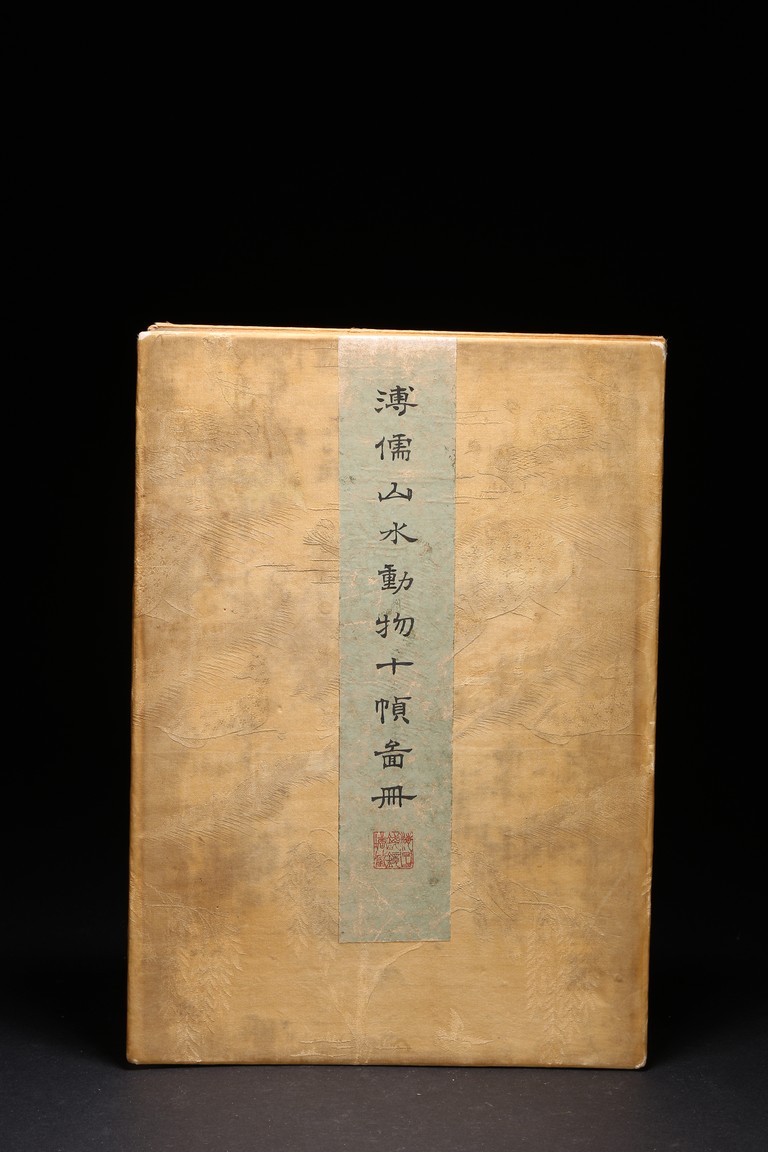 溥儒山水動物十幀畫冊